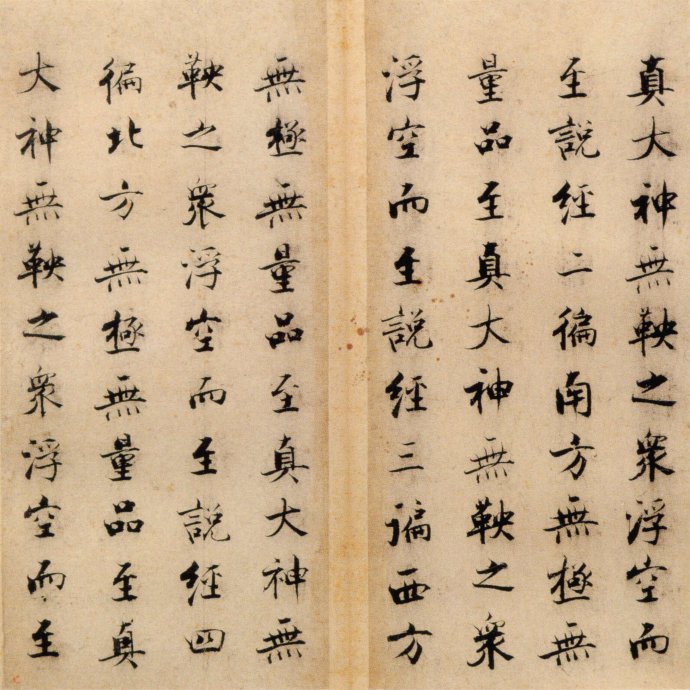 真大神無鞅之衆浮空而
至說經二徧南方無極無
量品至真大神無鞅之衆
浮空而至說經三諞西方
無極無量品至真大神無
鞅之衆浮空而至說經四
徧北方無極無量品至真
大神無鞅之衆浮空而至